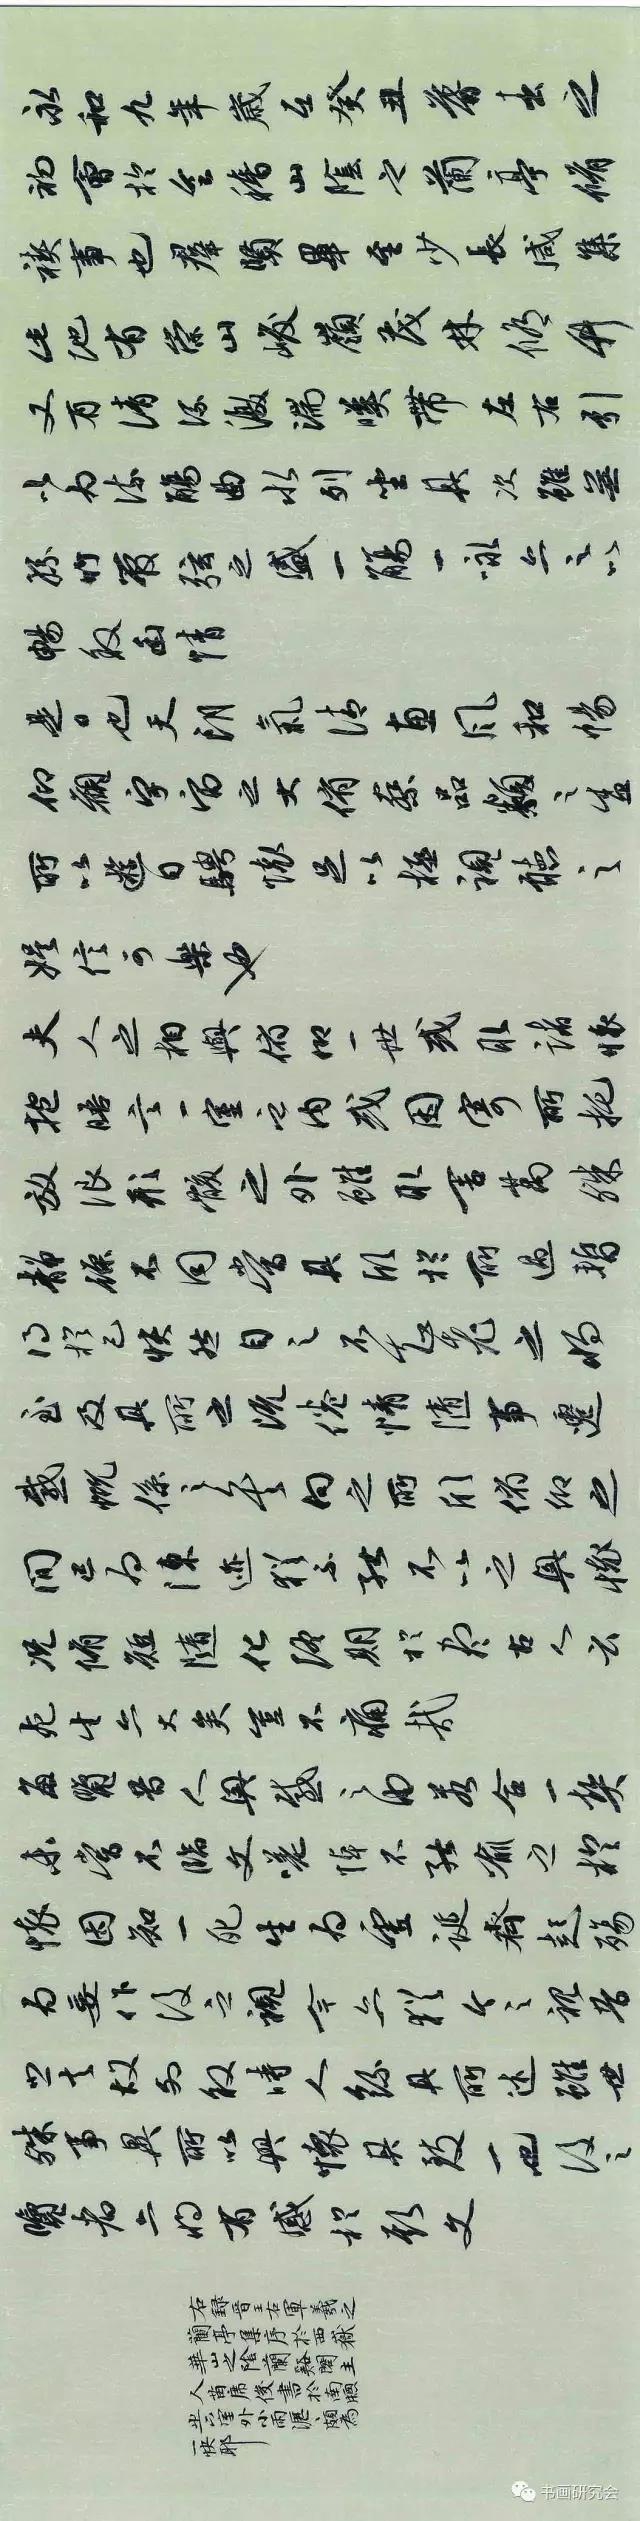 永和九年歲在癸丑暮春之
初會於會稽山陰之蘭亭脩
禊事也群賢畢至少長咸集
此地有崇山峻嶺茂林修竹
又有清流激湍映帶左右引
以為流觴曲水列坐其次雖無
絲竹管弦之盛一觴一詠亦足以
暢敘幽情
是日也天朗氣清惠風和暢
仰觀宇宙之大俯察品類之盛
所以遊目騁懷足以極視聽之
娛信可樂也
夫人之相與俯仰一世或取諸懷
抱晤言一室之內或因寄所托
放浪形骸之外雖取舍萬殊
靜躁不同當其欣於所遇暫
得於己快然自足不知老之將
至及其所之既倦情隨事遷
感慨係之矣向之所欣俯仰之
間已為陳迹猶不能不以之興懷
況脩短隨化終期於盡古人云
死生亦大矣豈不痛哉
每覽昔人興感之由若合一契
未嘗不臨文嗟悼不能喻之於
懷固知一死生為虛誕齊彭殤
為妄作後之視今亦猶今之視昔
悲夫故列敘時人錄其所述雖世
殊事異所以興懷其致一也後之
覽者亦將有感於斯文
右録晉王右軍羲之
蘭亭集序於西嶽
華山之陰蘭谿閣主
人苗席俊書於南
半室外小雨頗為
一快耶
书画研究会